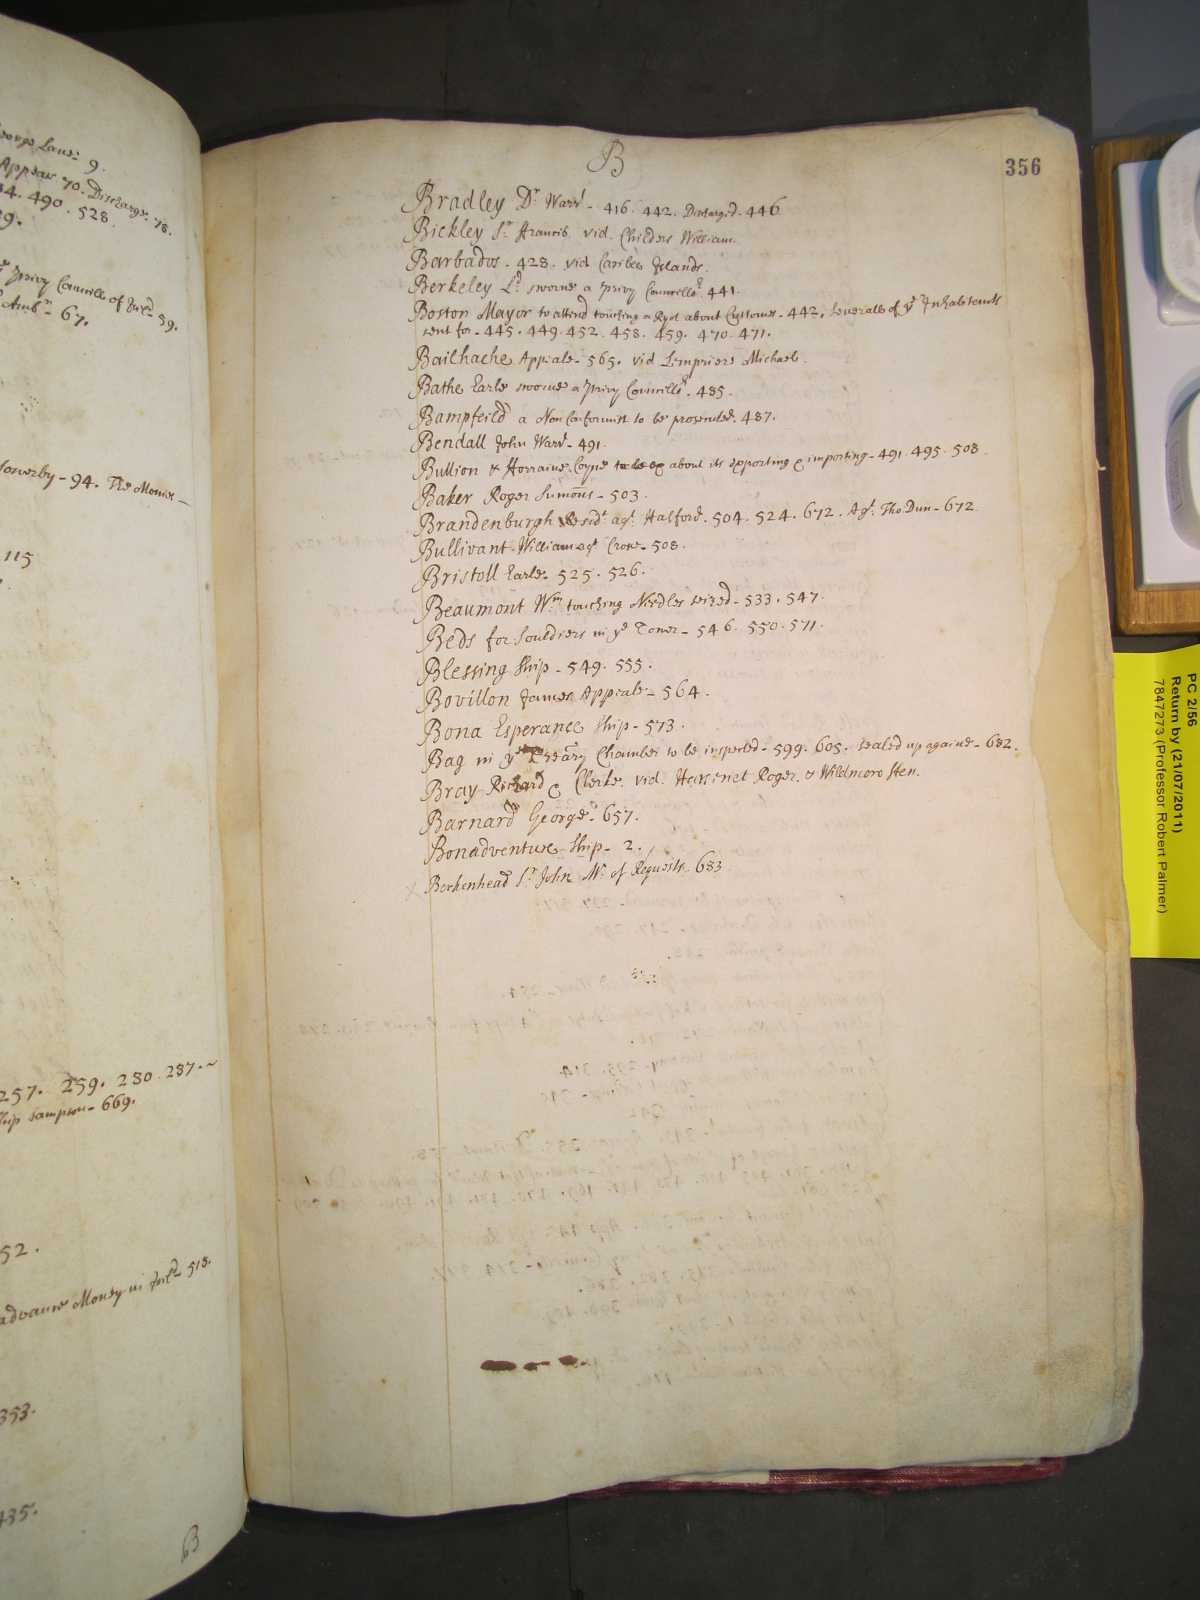 George Lane 9.
Appear 70. Discharge. 78.
34. 490. 528.
29.
Privy Councill of Irld 59.
Amb:rs - 67.
Sowerby - 94. The Monies -
115
257. 259. 280. 287. ~
Ship Sampson - 669.
52.
advance Money in Irld 518.
353.
435.
B
B
356
Bradley Dr. Warrt - 416. 442. Discharged. 446.
Bickley Sr. Francis. vid. Childers William.
Barbados. 428. vid Caribee Islands.
Berkeley Ld. sworne a Privy Councellor. 441.
Boston Mayor to attend touching a Ryot about Customes - 442. severalls of ye Inhabitants
sent for - 445. 449. 452. 458. 459. 470. 471.
Bailhache Appeale - 565. vid Lempriere Michael.
Bathe Earle sworne a Privy Councellr. 485.
Bampfeild a Nonconformist to be prosecuted. 487.
Bendall John Warrt - 491.
Bullion & Forraine Coyne about its exporting & importing - 491. 495. 508.
Baker Roger Sumons - 503.
Brandenburgh Residt agt. Halford. 504. 524. 672. Agt. Tho. Dun - 672.
Bullivant William agt Crow - 508.
Bristoll Earle. 525. 526.
Beaumont Wm. touching Needles seized - 533. 547.
Beds for Souldiers in ye Tower - 546. 550. 571.
Blessing Ship - 549. 555.
Bovillon James Appeale - 564.
Bona Esperance Ship - 573.
Bag in ye Treāry Chamber to be inspected - 599. 605. sealed up againe - 682.
Bray Richard & Clerke. vid. Harsnet Roger. & Wildmore Hen.
Barnard George - 657.
Bonadventure Ship - 2.
Berkenhead Sr. John Mr. of Requests. 683
PC 2/56
Return by (21/07/2011)
7847273 (Professor Robert Palmer)